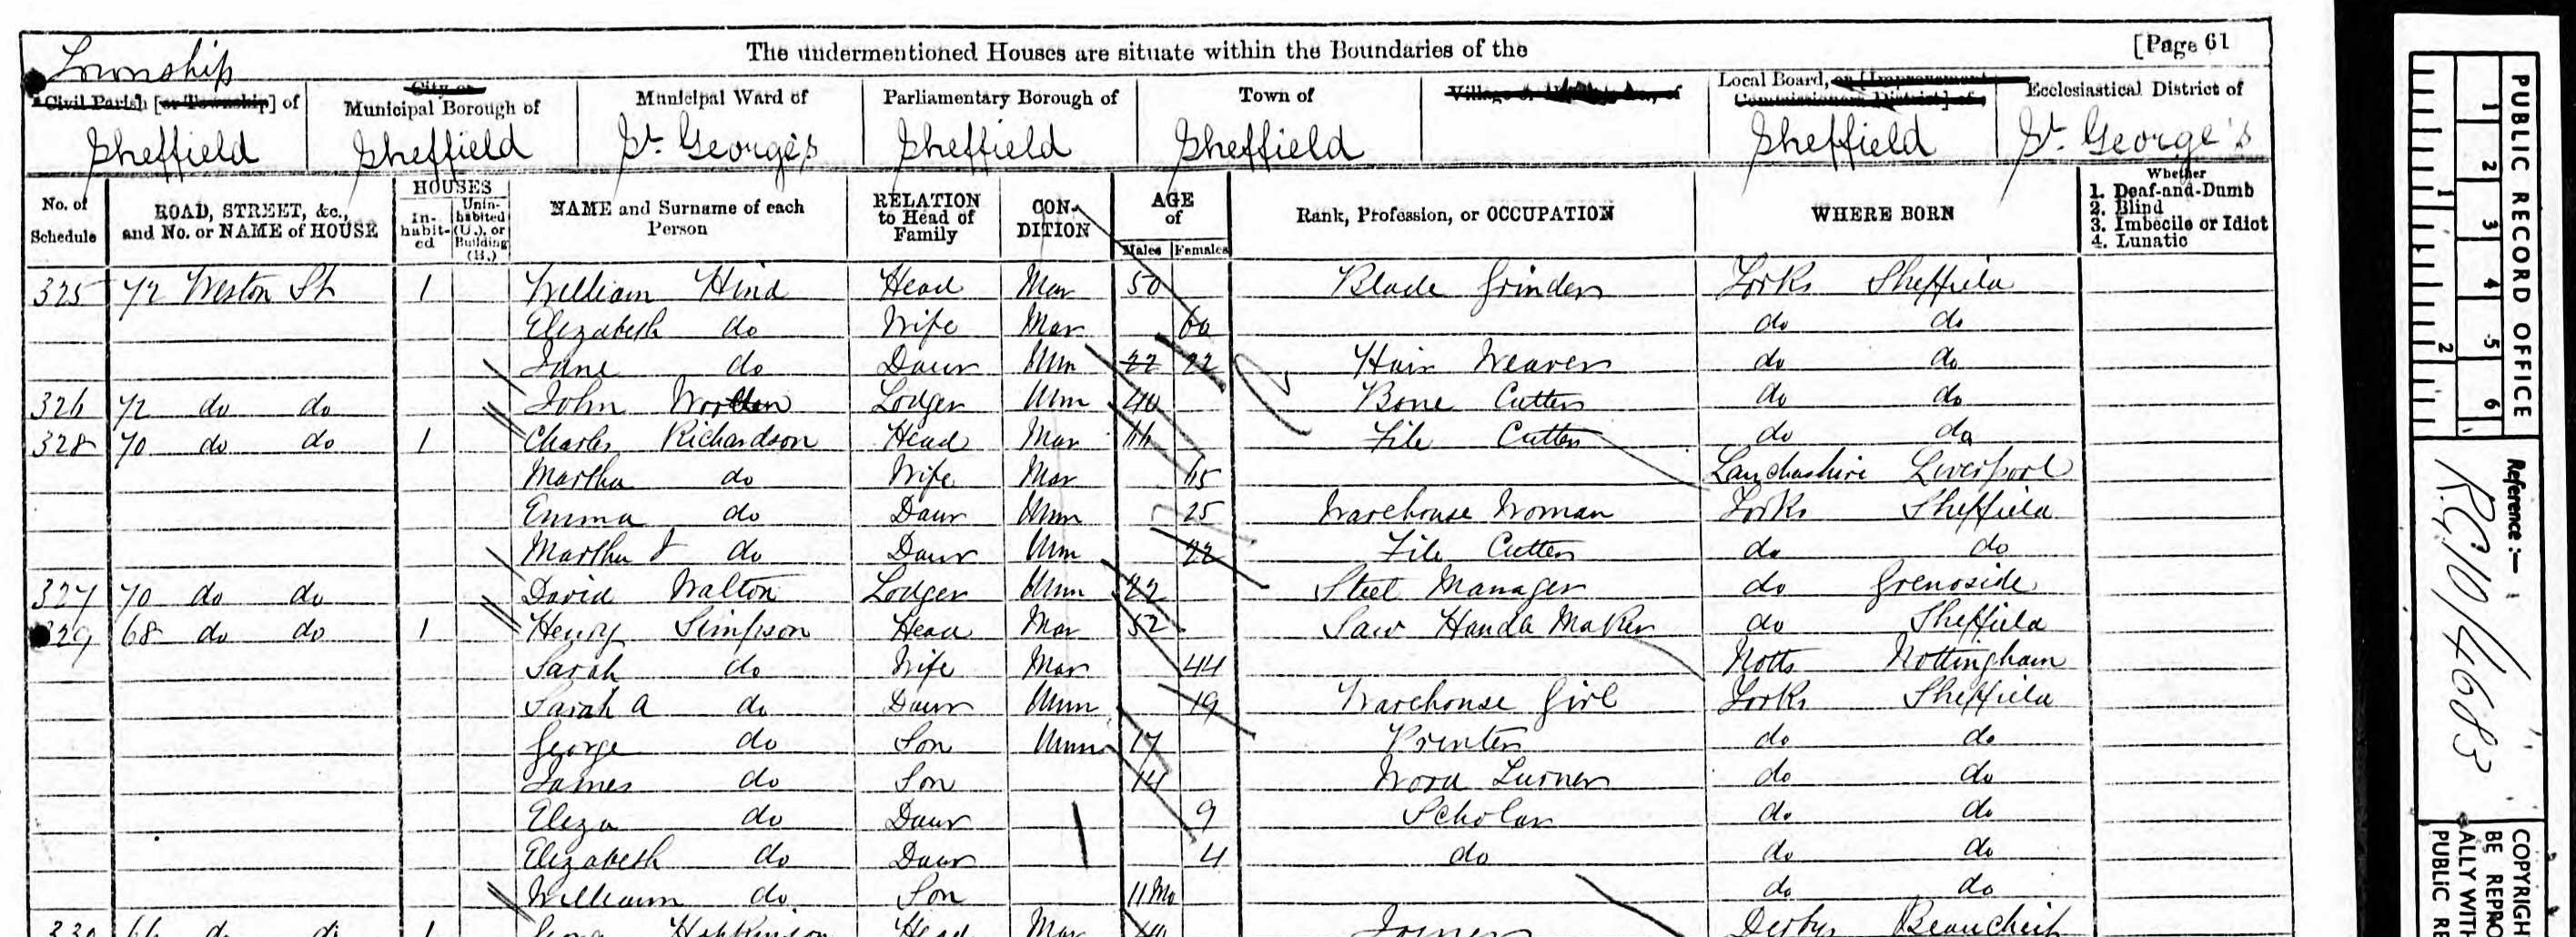 The undermentioned Houses are situate within the Boundaries of the [Page 61
Township
Civil Parish [or Township] of
City or Municipal Borough of
Municipal Ward of
Parliamentary Borough of
Town of
Village
Local Board, or [Improvement Commissioners District] of
Ecclesiastical District of
Sheffield Sheffield St. George's Sheffield Sheffield Sheffield St. George's
No. of Schedule
ROAD, STREET, &c., and No. or NAME of HOUSE
HOUSES
In-habit-ed
Unin-habited (U.), or Building (B.)
NAME and Surname of each Person
RELATION to Head of Family
CON-DITION
AGE of
Males Females
Rank, Profession, or OCCUPATION
WHERE BORN
Whether
1. Deaf-and-Dumb
2. Blind
3. Imbecile or Idiot
4. Lunatic
325 72 Weston St 1 William Hind Head Mar 50 Blade Grinder Yorks Sheffield
Elizabeth do Wife Mar 60 do do
Jane do Daur Unm 22 22 Hair Weaver do do
326 72 do do John Lodger Unm 40 Bone Cutter do do
328 70 do do 1 Charles Richardson Head Mar 66 File Cutter do do
Martha do Wife Mar 65 Lanchashire Liverpool
Emma do Daur Unm 25 Warehouse Woman Yorks Sheffield
Martha J do Daur Unm 22 File Cutter do do
327 70 do do David Walton Lodger Unm 22 Steel Manager do Grenoside
329 68 do do 1 Henry Simpson Head Mar 52 Saw Handle Maker do Sheffield
Sarah do Wife Mar 44 Notts Nottingham
Sarah A do Daur Unm 19 Warehouse Girl Yorks Sheffield
George do Son Unm 17 Printer do do
James do Son 14 Wood Turner do do
Eliza do Daur 9 Scholar do do
Elizabeth do Daur 4 do do do
William do Son 11 Mo do do
330 66 do do 1 Hopkinson Head Mar Joiner Derby Beauchief
PUBLIC RECORD OFFICE
1 2 3 4 5 6
1 2
Reference:-
R.G. 10/4683
COPYRIGH
BE REPRO
ALLY WITH
PUBLIC RE